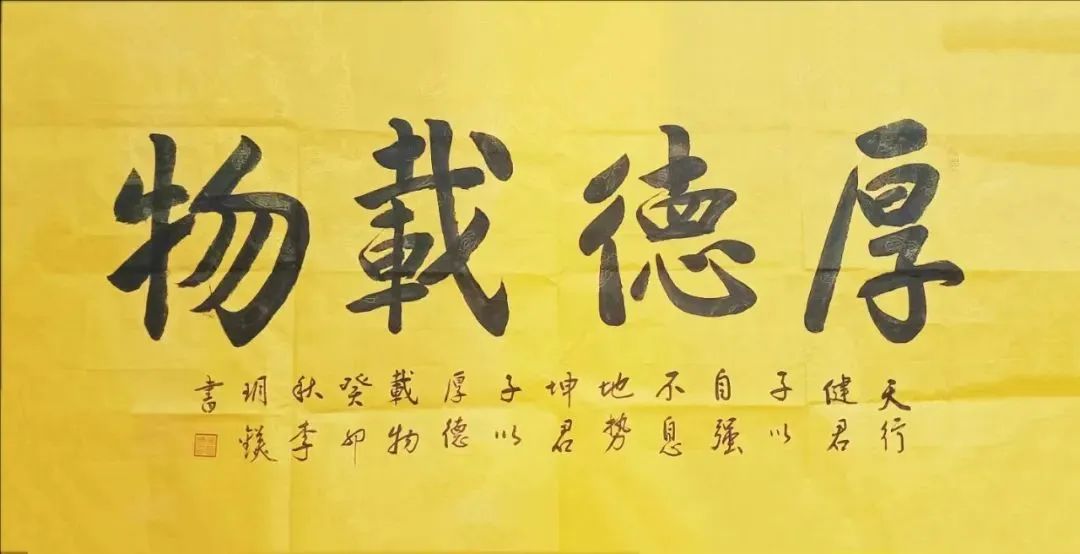 厚德載物
天行
健君
子以
自强
不息
地势
坤君
子以
厚德
載物
癸卯
秋李
玥鎂
書